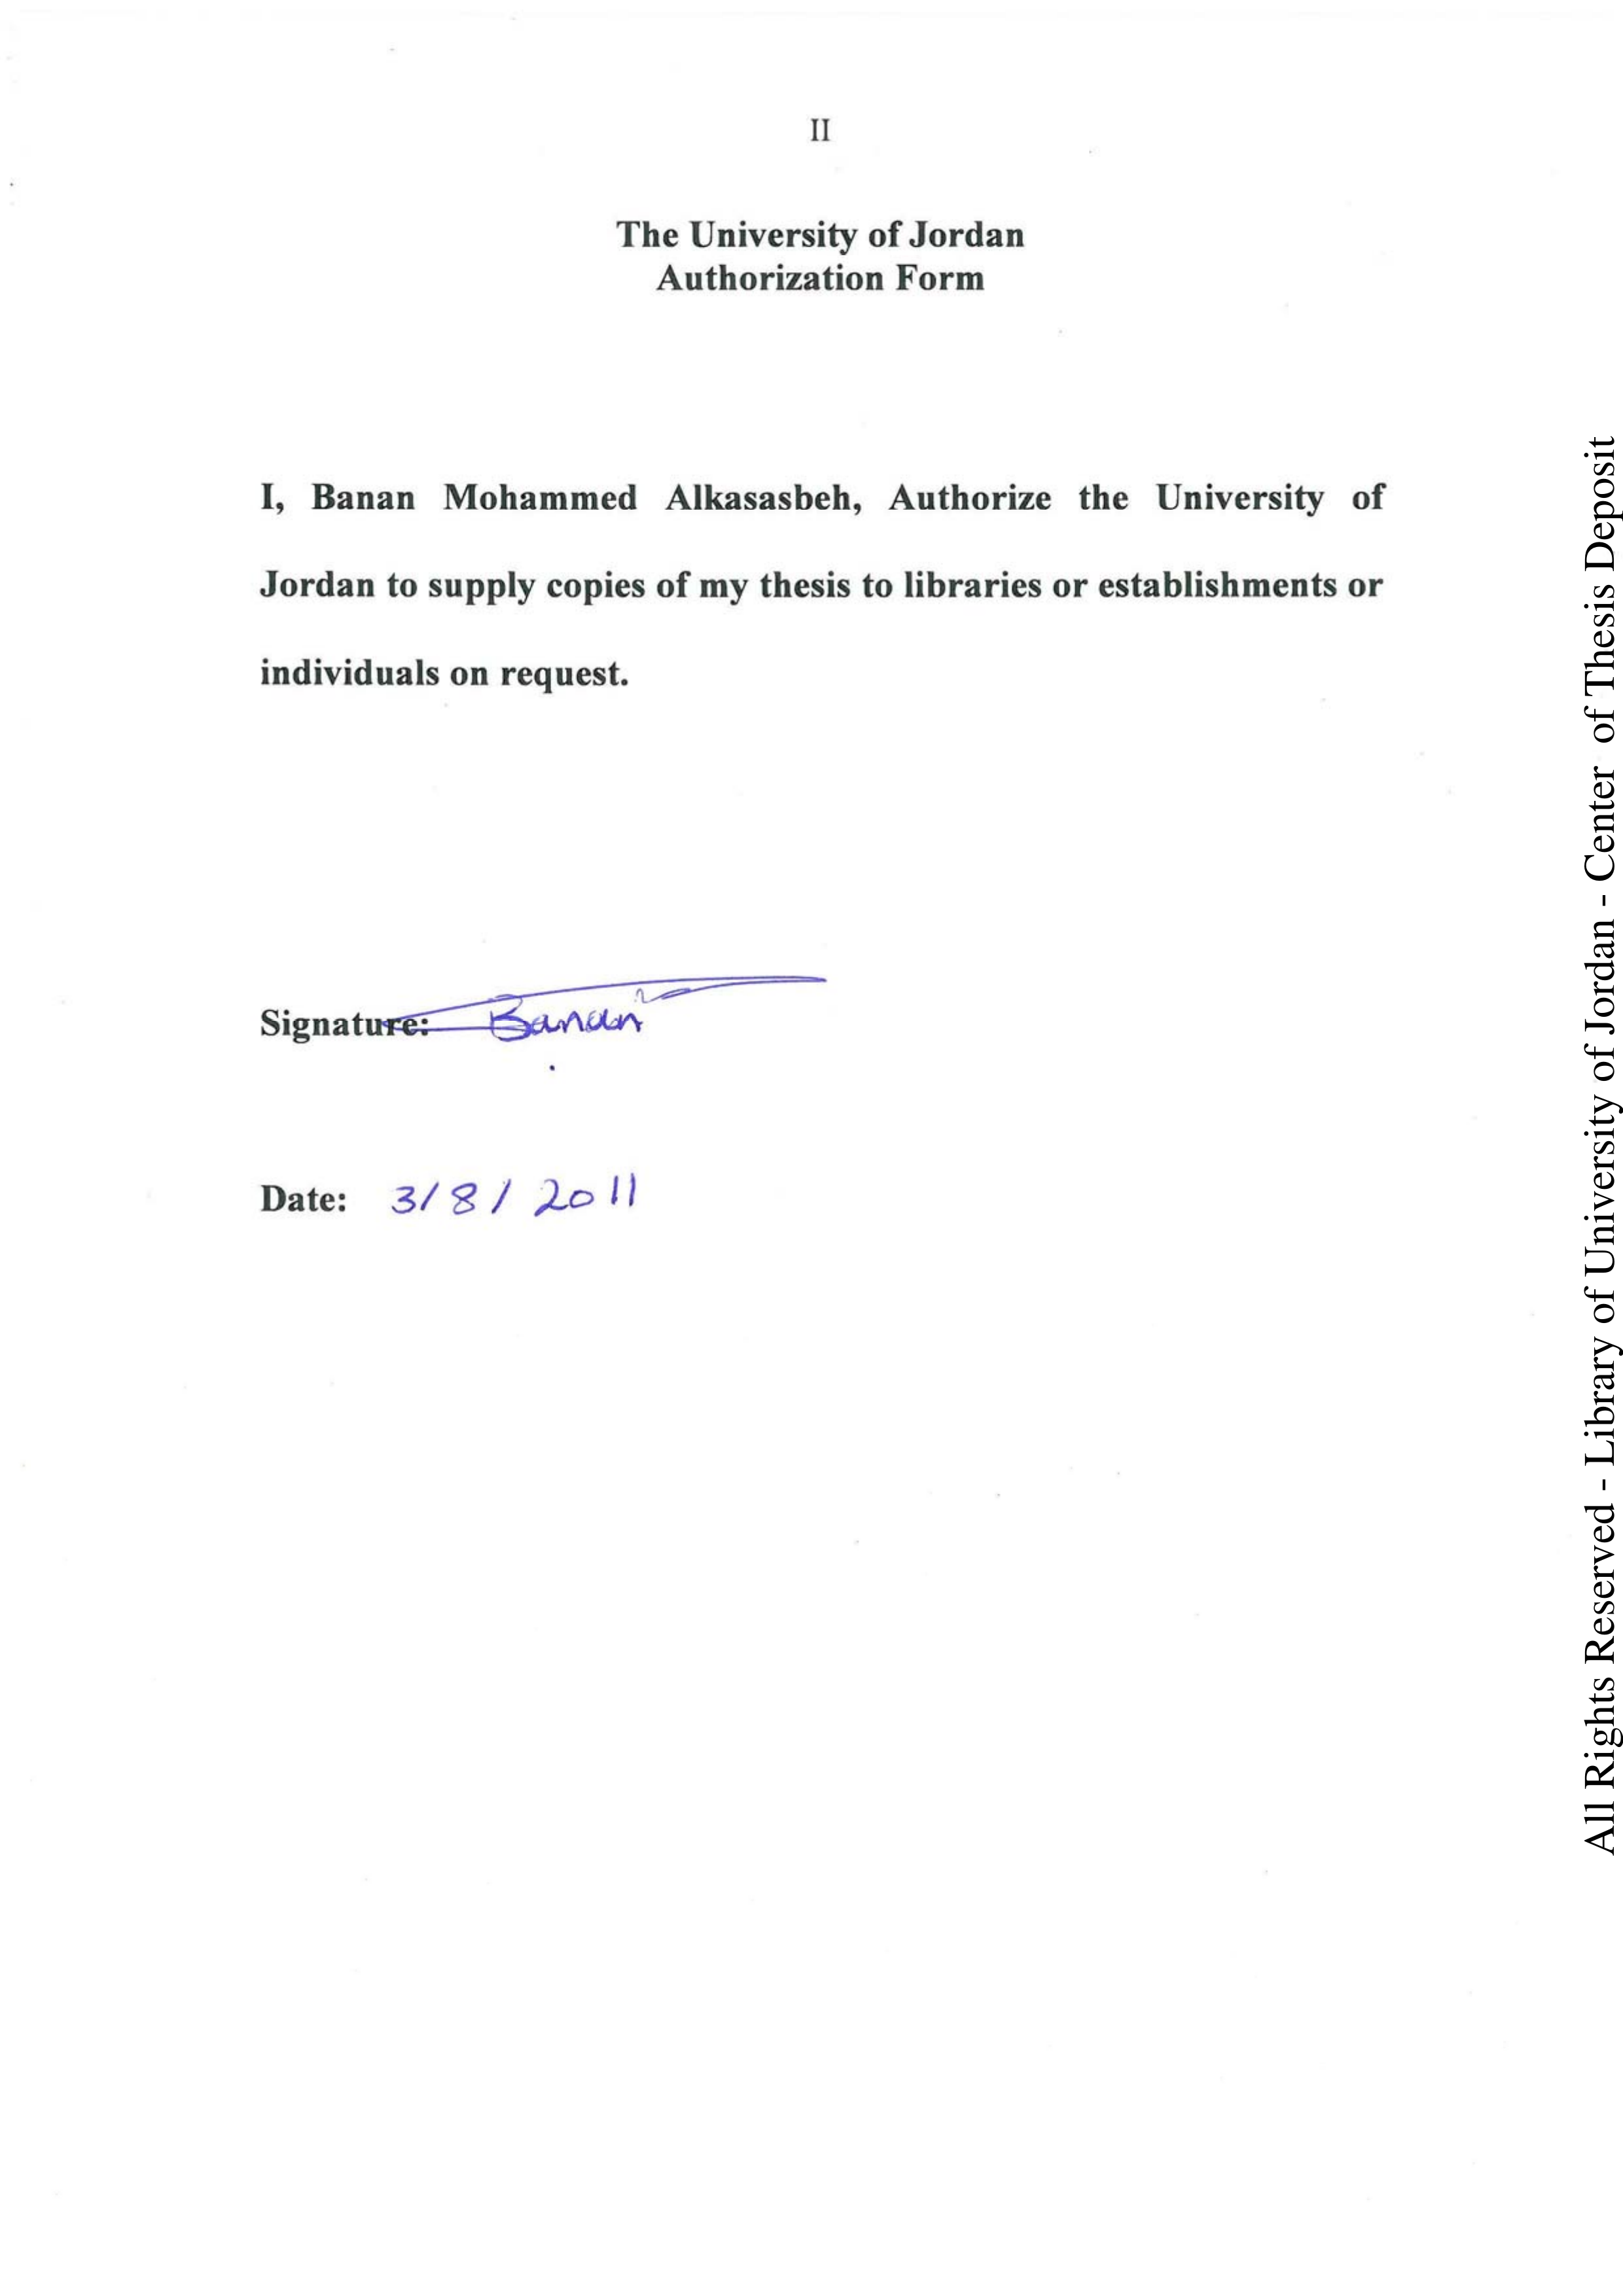 II
The University of Jordan
Authorization Form
I, Banan Mohammed Alkasasbeh, Authorize the University of
Jordan to supply copies of my thesis to libraries or establishments or
individuals on request.
Signature: Banan
Date: 3/8/2011
All Rights Reserved - Library of University of Jordan - Center of Thesis Deposit